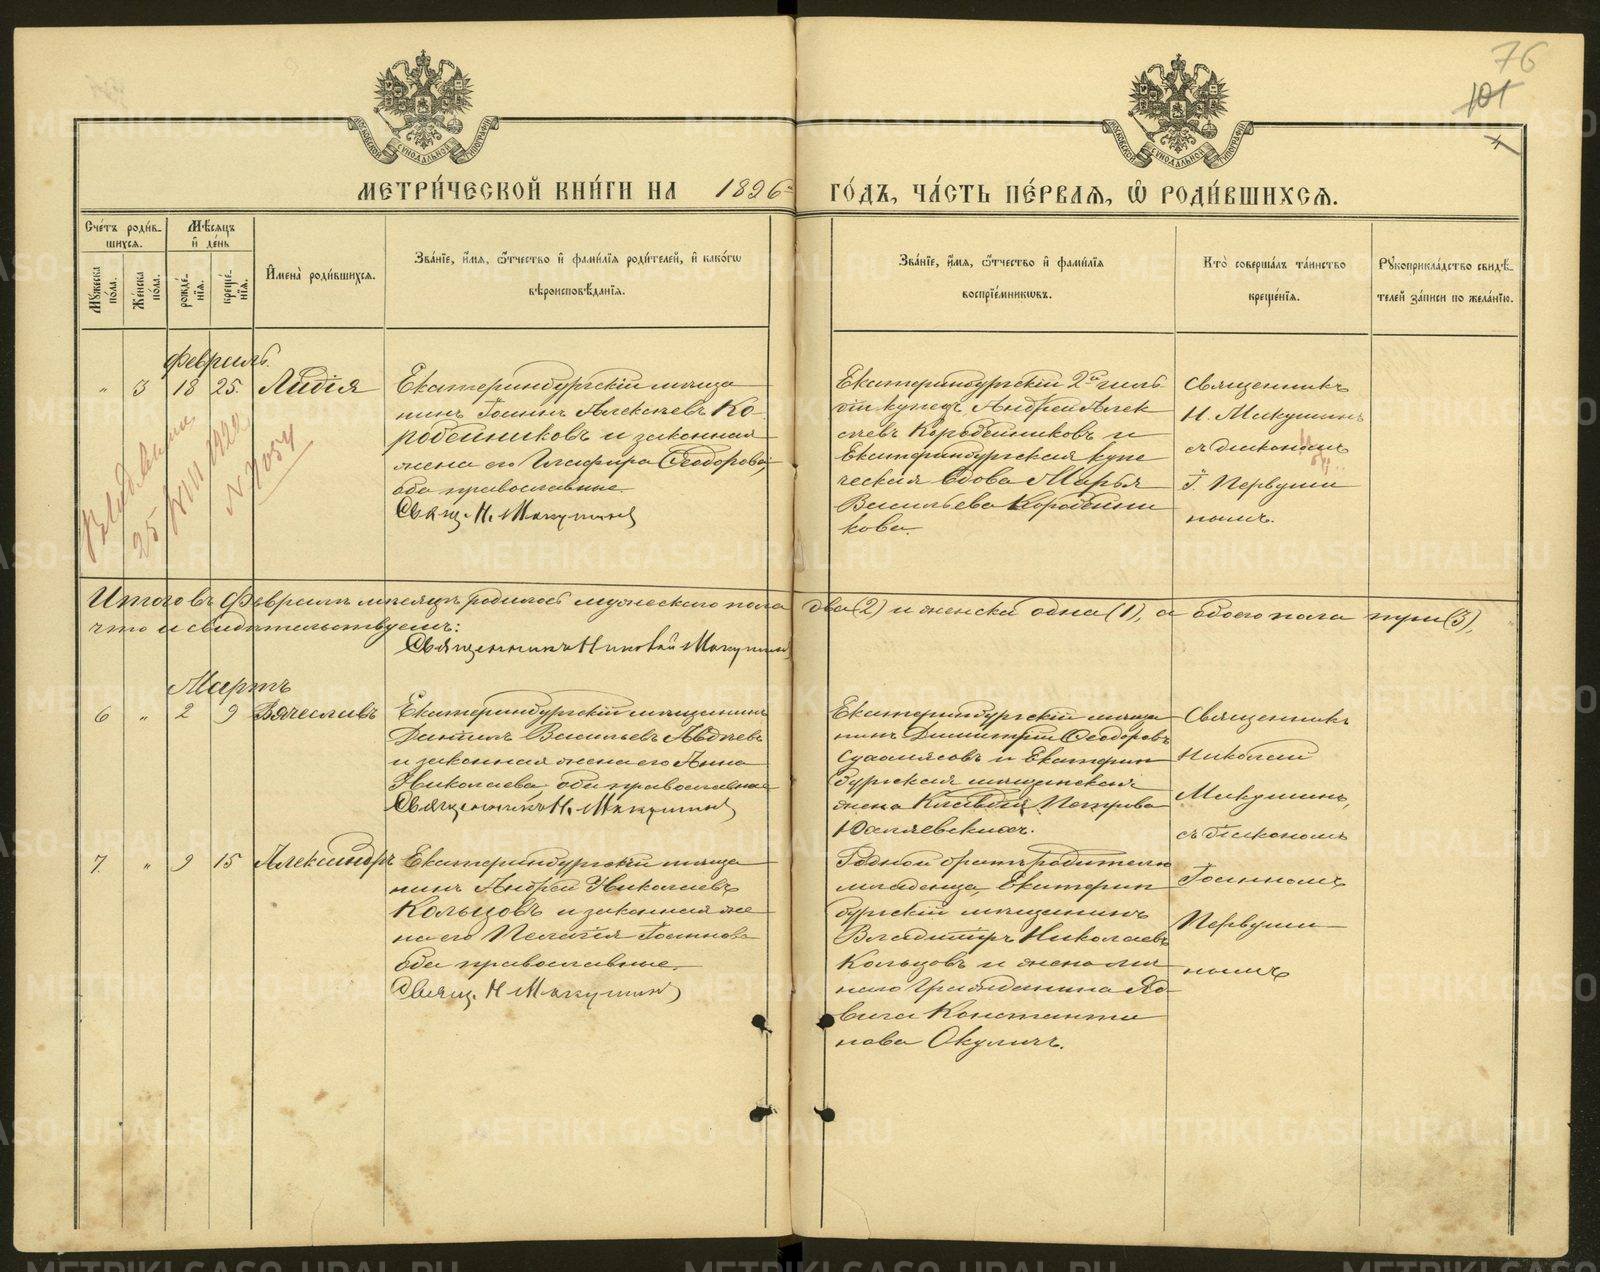 76
101
МОСКОВСКОЙ СѴНОДАЛЬНОЙ ТИПОГРАФІИ
МОСКОВСКОЙ СѴНОДАЛЬНОЙ ТИПОГРАФІИ
МЕТРИ́ЧЕСКОЙ КНИ́ГИ НА 1896 ГО́ДЪ, ЧА́СТЬ ПЕ́РВАѦ, Ѽ РОДИ́ВШИХСѦ.
Сче́тъ роди́в-
шихсѧ.
Мꙋ́жеска по́ла.
Же́нска по́ла.
Мѣ́сѧцъ
и҆ де́нь
рожде́-
нїѧ.
креще́-
нїѧ.
И҆мена̀ роди́вшихсѧ.
Зва́нїе, и҆́мѧ, ѻ҆́тчество и҆ фами́лїѧ роди́телей, и҆ како́гѡ
вѣроисповѣ́данїѧ.
Зва́нїе, и҆́мѧ, ѻ҆́тчество и҆ фами́лїѧ
воспрїе́мникѡвъ.
Кто̀ соверша́лъ та́инство
креще́нїѧ.
Рꙋкоприкла́дство свидѣ́-
телей за́писи по жела́нїю.
Февраль.
" 3 18 25. Лидія
Екатеринбургскій мѣща
нинъ Іоаннъ Алексѣевъ Ко-
робейниковъ и законная
жена его Глафира Ѳеодорова,
оба православные.
Свящ. Н. Макушинъ
Екатеринбургскій 2й гиль
діи купецъ Андрей Алек
сѣевъ Коробейниковъ и
Екатеринбургская купе
ческая вдова Марья
Васильева Коробейни
кова.
Священникъ
Н. Макушинъ
съ діакономъ
І. Первуши
нымъ.
25 VIII 1922
N 7054
Итого въ Февралѣ мѣсяцѣ родилось мужескаго пола два (2) и женска одна (1), а обоего пола три (3),
что и свидѣтельствуемъ:
Священникъ Николай Макушинъ
Мартъ
6 " 2 9 Вячеславъ
Екатеринбургскій мѣщанинъ
Даніилъ Васильевъ Авдѣевъ
и законная жена его Анна
Николаева, оба православные
Священникъ Н. Макушинъ
Екатеринбургскій мѣща
нинъ Димитрій Ѳеодоровъ
и Екатерин
бургская мѣщанская
жена Клавдія Петрова
Священникъ
Николай
Макушинъ,
съ діакономъ
Іоанномъ
Первуши
нымъ
7. " 9 15 Александръ
Екатеринбургскій мѣща
нинъ Андрей Николаевъ
Кольцовъ и законная же
на его Пелагія Іоаннова
оба православные.
Свящ. Н. Макушинъ
Родной братъ родителя
младенца, Екатерин
бургскій мѣщанинъ
Владимиръ Николаевъ
Кольцовъ и жена лич
наго Гражданина Яд-
вига Константи
нова Окуличъ.
METRIKI.GASO-URAL.RU